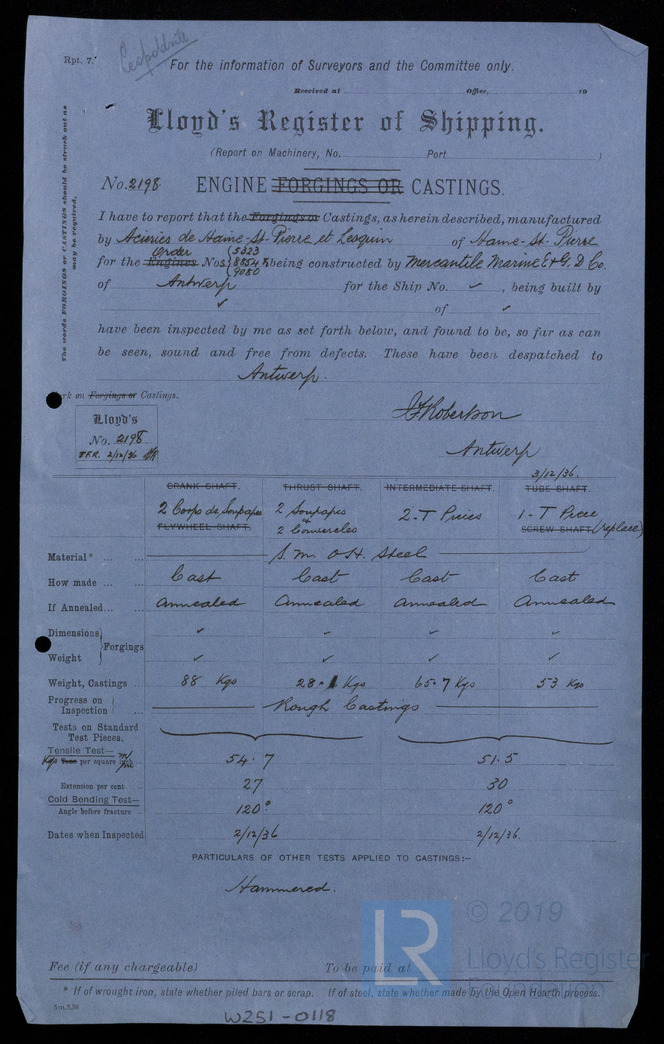 Rpt. 7.
Leopoldville
For the information of Surveyors and the Committee only.
Received at Office, 19
Lloyd's Register of Shipping.
(Report on Machinery, No. Port )
The words FORGINGS or CASTINGS should be struck out as may be required.
No. 2198 ENGINE FORGINGS OR CASTINGS.
I have to report that the Forgings or Castings, as herein described, manufactured
by Aciéries de Haine-St-Pierre et Lesquin of Haine-St. Pierre
for the Engines Order Nos. 5323 8854 9080 being constructed by Mercantile Marine E & G. D Co.
of Antwerp for the Ship No. ✓, being built by
✓ of ✓
have been inspected by me as set forth below, and found to be, so far as can
be seen, sound and free from defects. These have been despatched to
Antwerp.
rk on Forgings or Castings.
Lloyd's
No. 2198
J.F.R. 2/12/36
J F Robertson
Antwerp
3/12/36.
CRANK SHAFT. THRUST SHAFT. INTERMEDIATE SHAFT. TUBE SHAFT.
2 Corps de Soupapes 2 Soupapes + 2 Couvercles 2-T Pieces 1-T Piece (replace)
FLYWHEEL SHAFT. SCREW SHAFT.
Material* ... S.M. O.H. Steel
How made ... Cast Cast Cast Cast
If Annealed... Annealed Annealed Annealed Annealed
Dimensions Forgings ✓ ✓ ✓ ✓
Weight ✓ ✓ ✓ ✓
Weight, Castings ... 88 Kgs 28.1 Kgs 65.7 Kgs 53 Kgs
Progress on Inspection ... Rough Castings
Tests on Standard Test Pieces.
Tensile Test—
Kgs Tons per square inch m/m 54.7 51.5
Extension per cent 27 30
Cold Bending Test—
Angle before fracture 120° 120°
Dates when Inspected 2/12/36 2/12/36.
PARTICULARS OF OTHER TESTS APPLIED TO CASTINGS:—
Hammered.
Fee (if any chargeable) To be paid at
* If of wrought iron, state whether piled bars or scrap. If of steel, state whether made by the Open Hearth process.
W251-0118
LR
© 2019
Lloyd's Register
Foundation